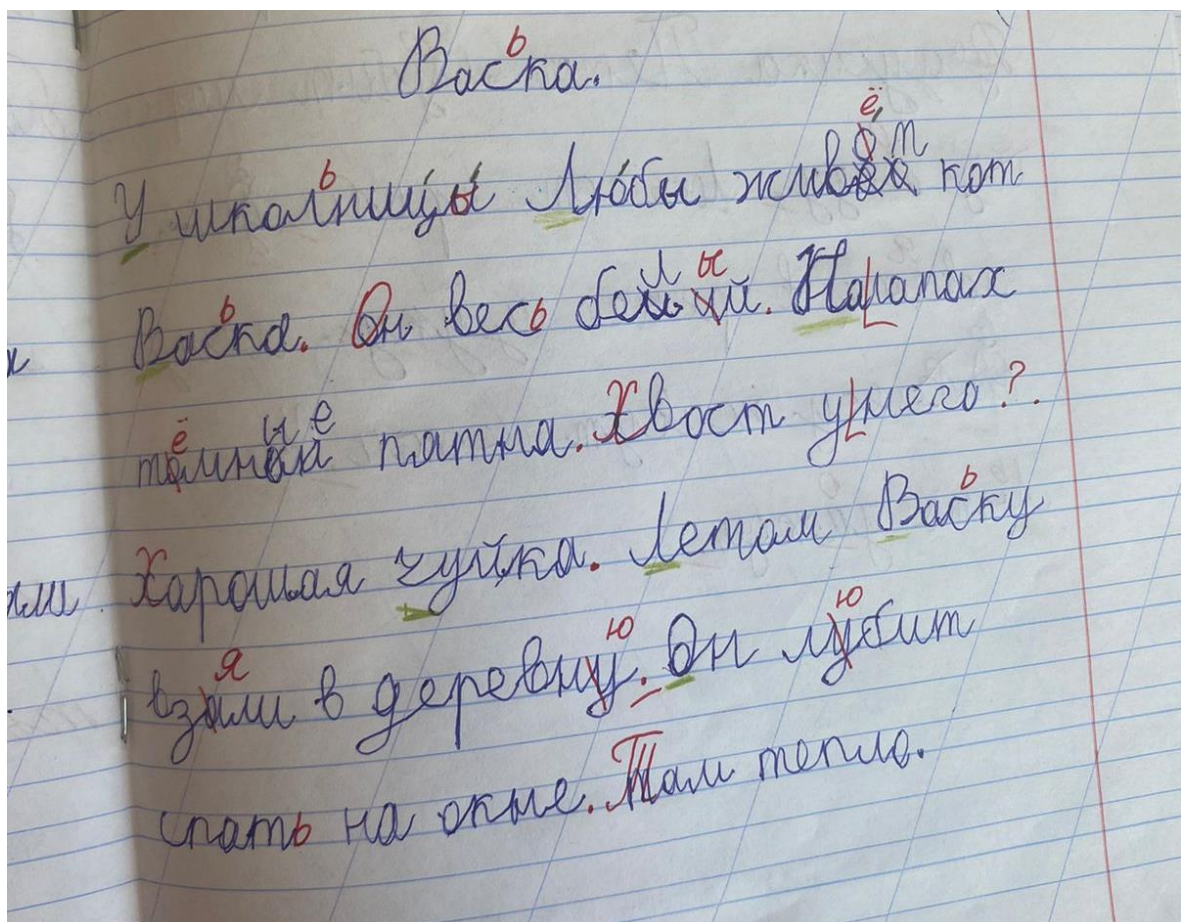 Васька.
У школьницы Любы живёт кот
Васька. Он весь белый. На лапах
тёмные пятна. Хвост у него?.
Харошая чуйка. Летом Ваську
взяли в деревню. Он любит
спать на окне. Там тепло.